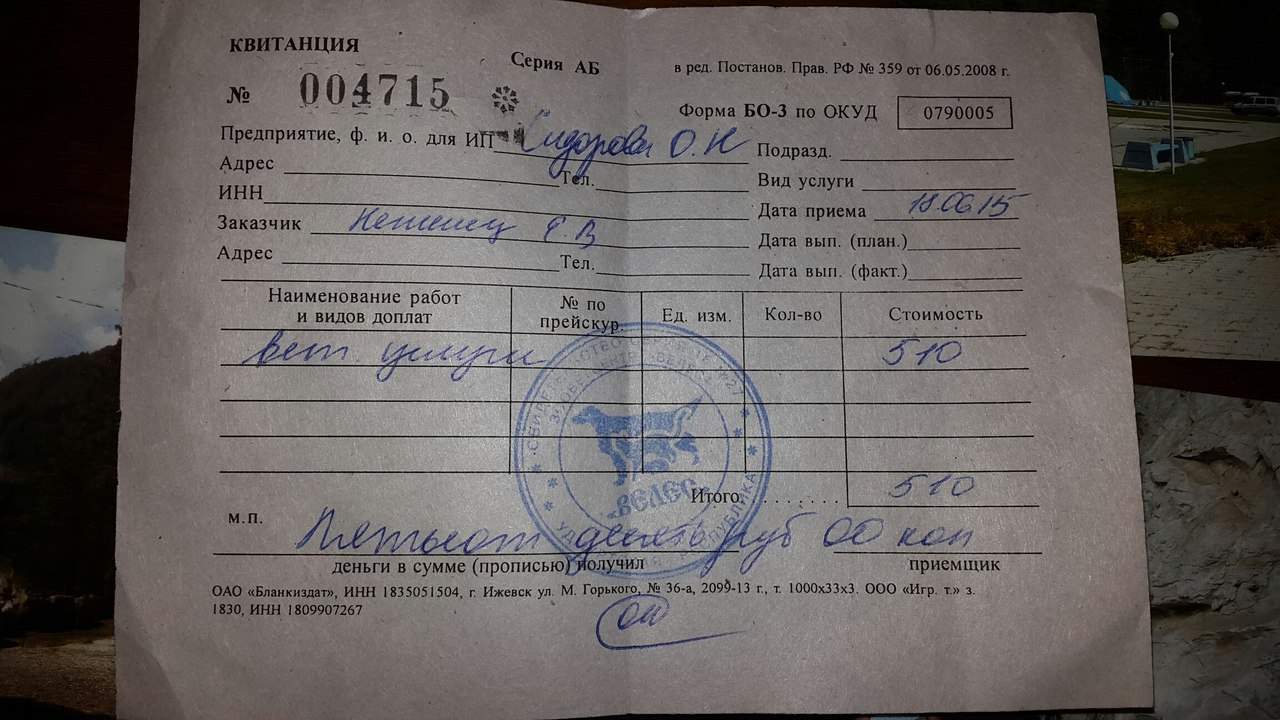 КВИТАНЦИЯ
Серия АБ
в ред. Постанов. Прав. РФ № 359 от 06.05.2008 г.
№ 004715
Форма БО-3 по ОКУД 0790005
Предприятие, ф. и. о. для ИП Сидорова О.Н
Подразд.
Адрес Тел.
Вид услуги
ИНН
Дата приема 18.06.15
Заказчик Е.В
Дата вып. (план.)
Адрес Тел.
Дата вып. (факт.)
Наименование работ и видов доплат № по прейскур. Ед. изм. Кол-во Стоимость
вет. услуги 510
Итого 510
«ВЕЛЕС»
м.п.
Пятьсот десять руб 00 коп
деньги в сумме (прописью) получил приемщик
ОАО «Бланкиздат», ИНН 1835051504, г. Ижевск ул. М. Горького, № 36-а, 2099-13 г., т. 1000х33х3. ООО «Игр. т.» з.
1830, ИНН 1809907267